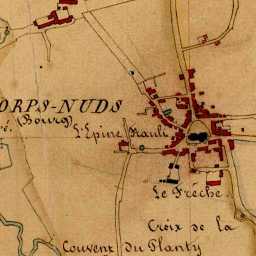 ORPS-NUDS
(Bourg)
L'Epine Rault
Le Frêche
Croix de la
Couvent du Planty